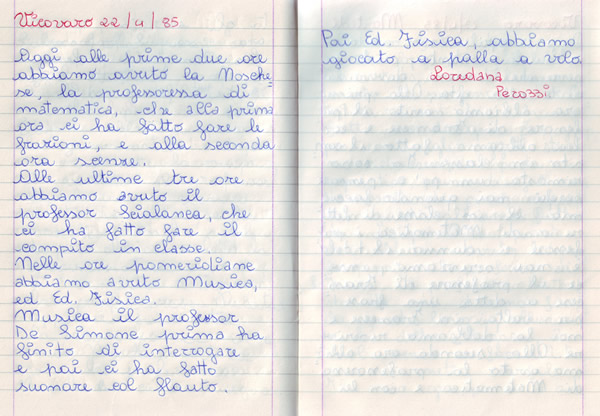 Vicovaro 22/4/85
Oggi alle prime due ore
abbiamo avuto la Nosche=
se, la professoressa di
matematica, che alla prima
ora ci ha fatto fare le
frazioni, e alla seconda
ora scienze.
Alle ultime tre ore
abbiamo avuto il
professor Scialanca, che
ci ha fatto fare il
compito in classe.
Nelle ore pomeridiane
abbiamo avuto Musica,
ed Ed. Fisica.
Musica il professor
De Simone prima ha
finito di interrogare
e poi ci ha fatto
suonare col flauto.
Poi Ed. Fisica, abbiamo
giocato a palla a volo.
Loredana
Perozzi.